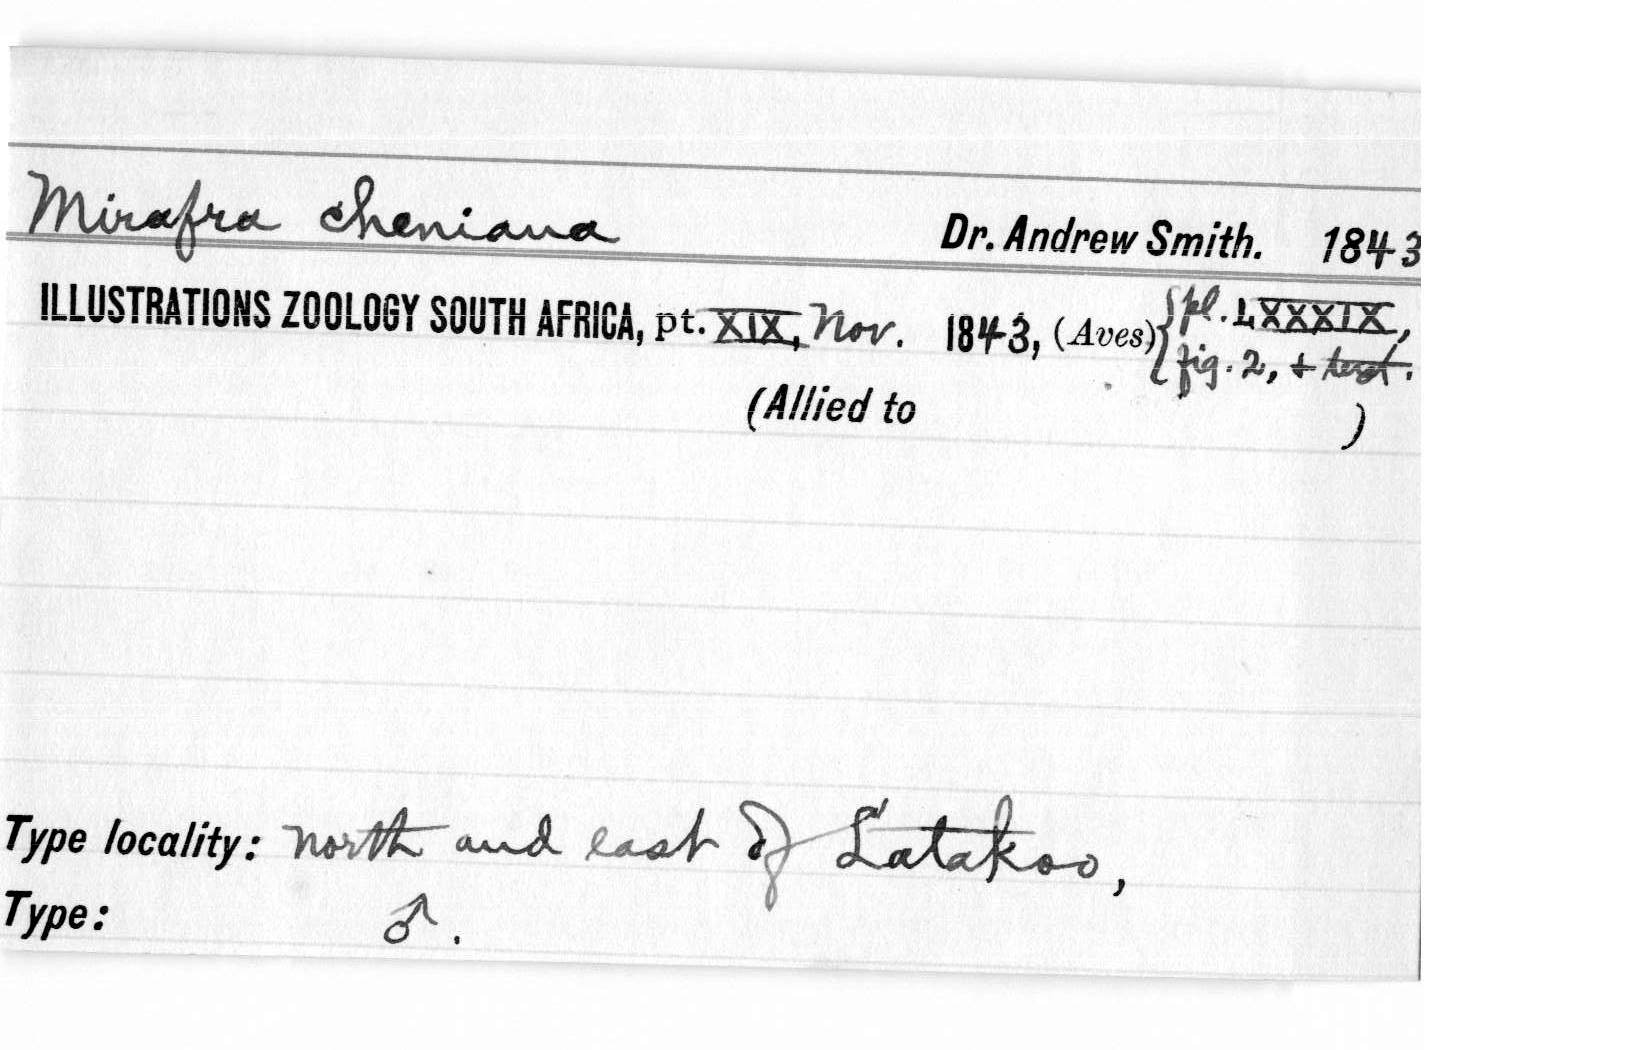 Mirafra cheniana Dr. Andrew Smith. 1843
ILLUSTRATIONS ZOOLOGY SOUTH AFRICA, pt. XIX, Nov. 1843, (Aves) { pl. LXXXIX,
fig. 2, + text.
(Allied to )
Type locality: north and east of Latakoo,
Type: ♂.